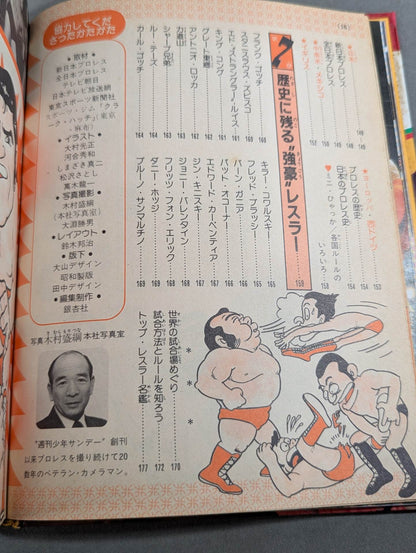 (16)
新日本プロレス
全日本プロレス
プロレスの歴史 154
日本のプロレス史 154
♥ミニ・ひゃっか・各国ルールの
いろいろ… 154
9 歴史に残る“強豪”レスラー 159
フランク・ゴッチ 160
スタニスラウス・ズビスコ 160
エド・ストラングラー・ルイス 161
キング・コング
グレート東郷 162
アントニオ・ロッカ
力道山 163
シャープ兄弟
ルー・テーズ 164
カール・ゴッチ 164
キラー・コワルスキー 165
フレッド・ブラッシー 165
バーン・ガニア 166
パット・オコーナー 166
エドワード・カーペンティア 167
ジン・キニスキー 167
ジョニー・バレンタイン 168
フリッツ・フォン・エリック 168
ダニー・ホッジ 169
ブルーノ・サンマルチノ 169
世界の試合場めぐり 170
試合方法とルールを知ろう 172
トップ・レスラー名鑑 177
協力してくだ
さったかたがた
●取材
新日本プロレス
全日本プロレス
テレビ朝日
日本テレビ放送網
東京スポーツ新聞社
スポーツ・ジム「クラ
ーク・ハッチ」(東京
・麻布)
●イラスト●
大村光正
河合秀和
しまざき真二
松沢さとし
萬木龍一
●写真撮影●
木村盛綱
(本社写真室)
大淵勝男
●レイアウト●
鈴木邦治
●版下●
大山デザイン
昭和製版
田中デザイン
●編集制作●
銀杏社
写真 木村盛綱 本社写真室
“週刊少年サンデー”創刊
以来プロレスを撮り続けて20
数年のベテラン・カメラマン。